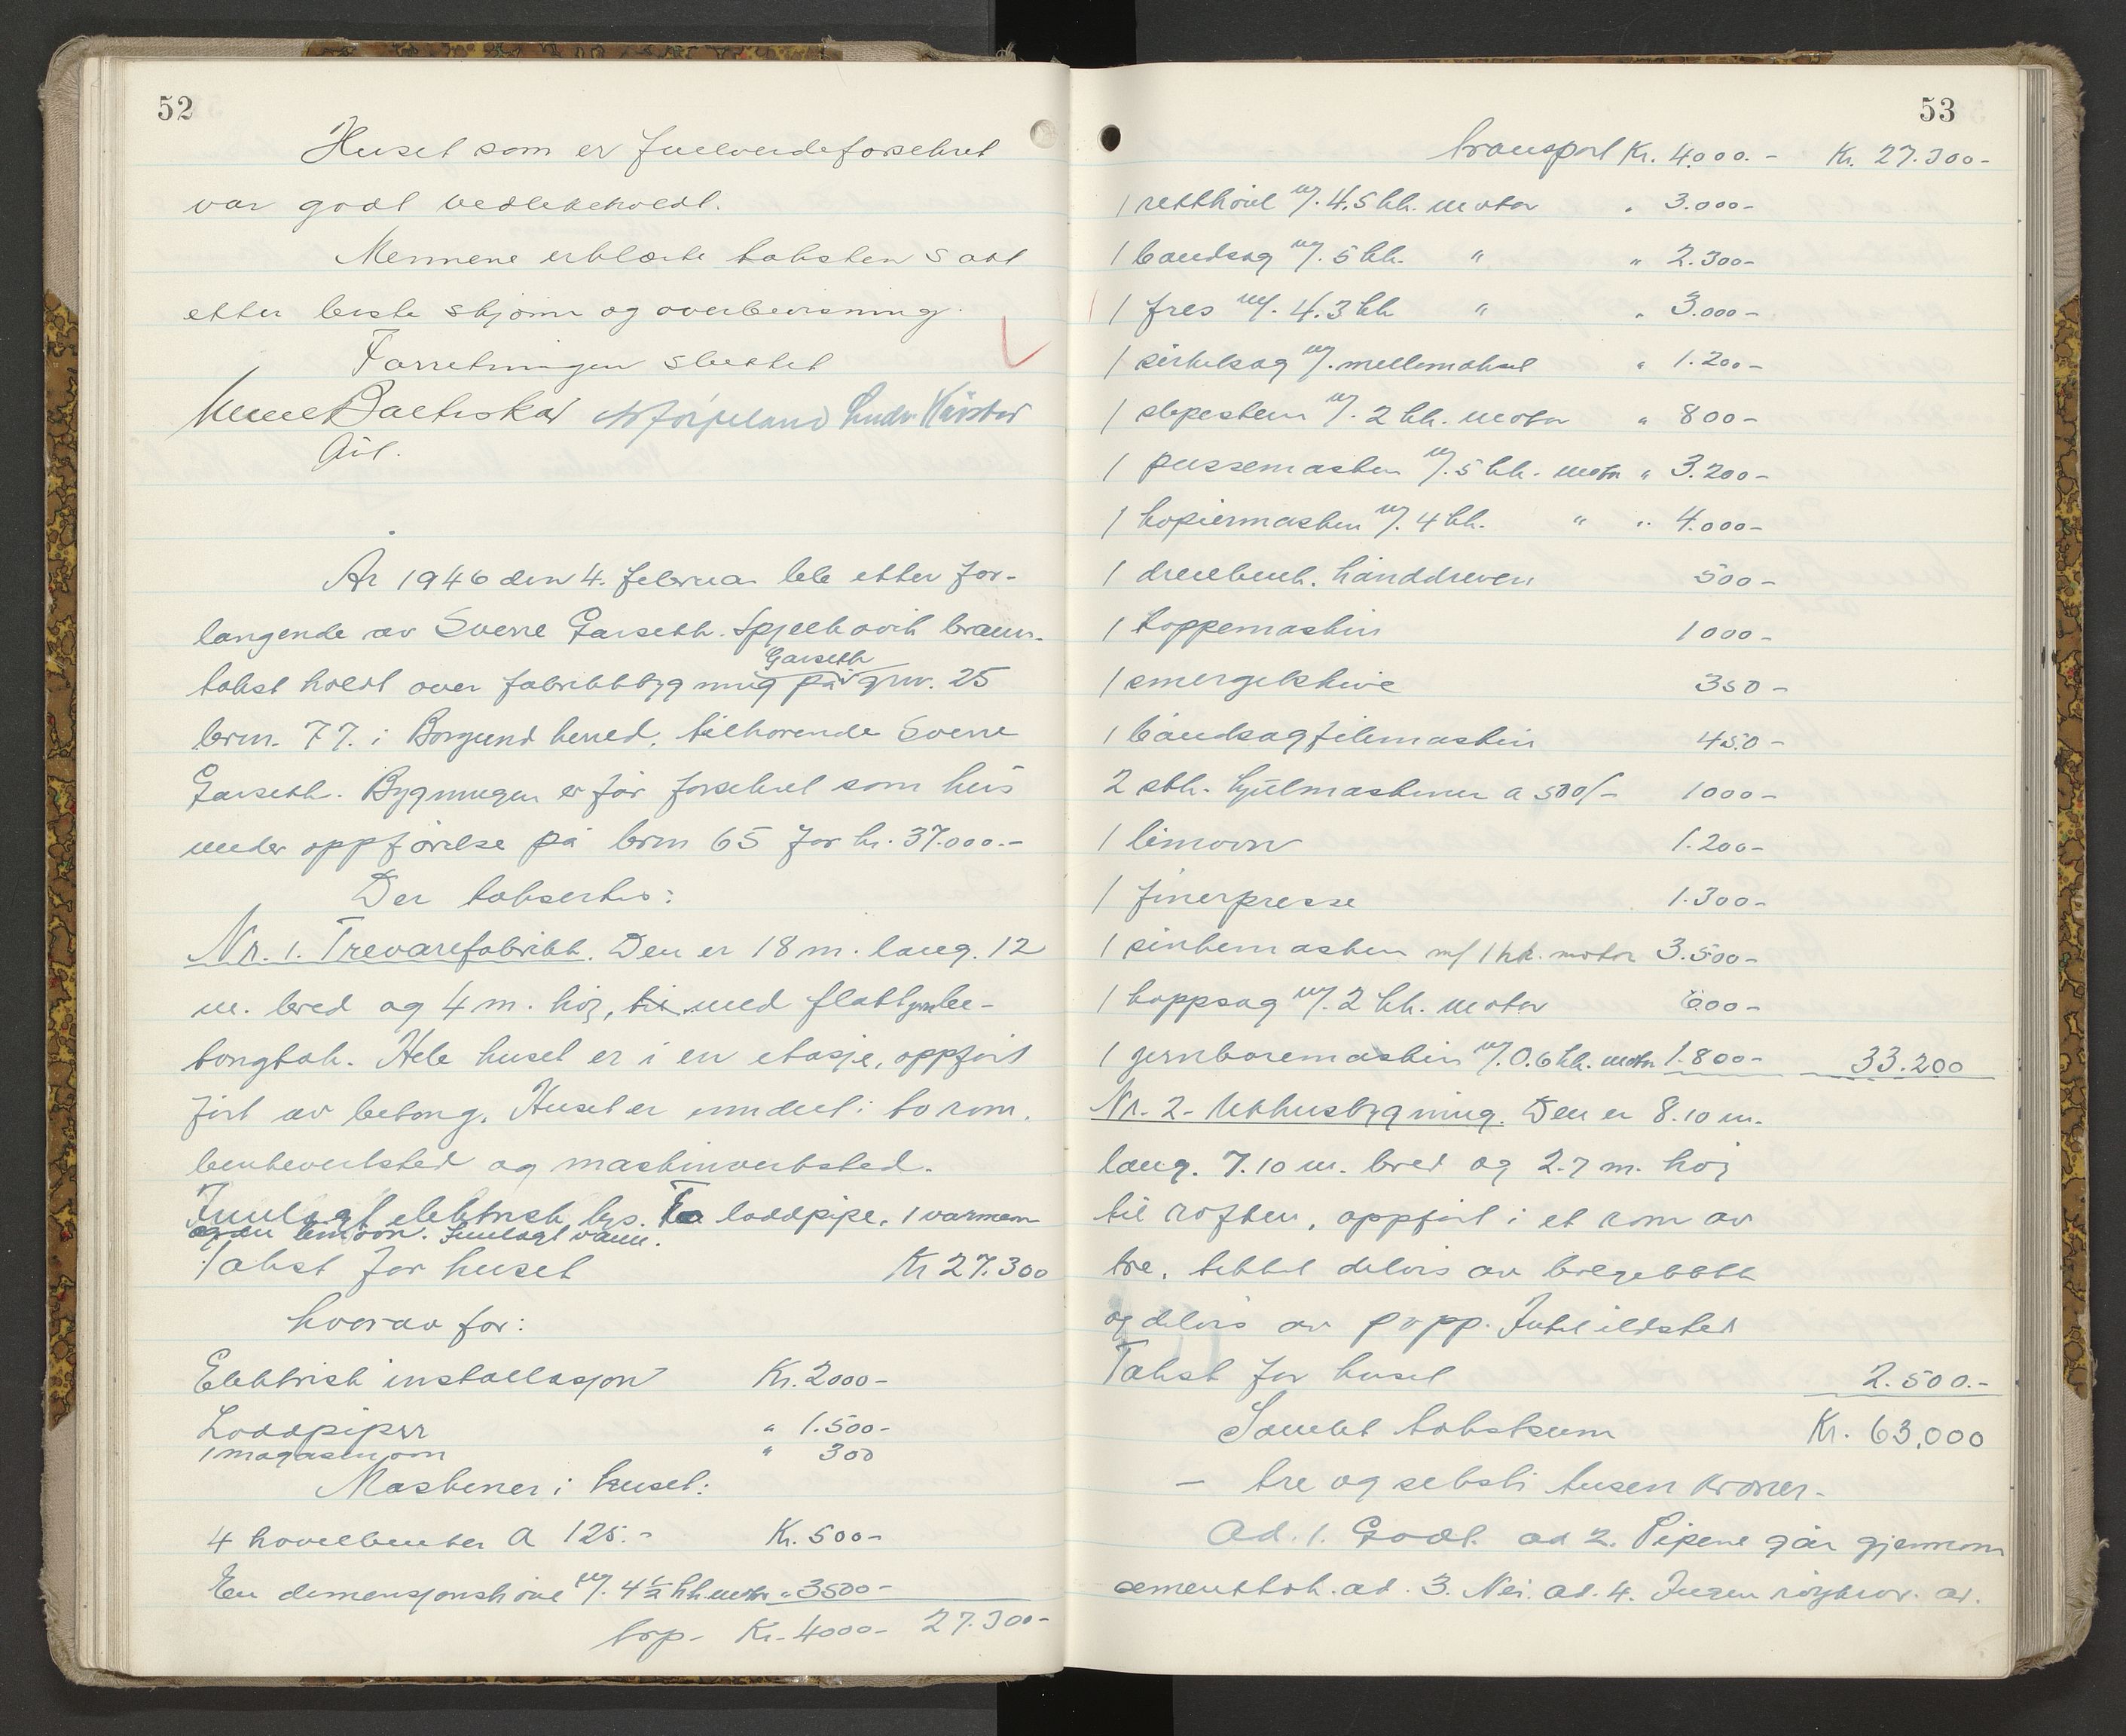 52
Huset som er fullverdeforsekret
var godt vedlekeholdt.
Mennene erklærte taksten satt
etter beste skjönn og overbevisning.
Forretningen sluttet
Andr. Kärstad
År 1946 den 4. februar ble etter for-
langende av Sverre Garseth. Spjelkavik brann-
Garseth
takst holdt over fabrikkbygning på grn. 25
brn. 77. i Borgund herred, tilhørende Sverre
Garseth. Bygningen er för forsekret som hus
under oppförelse på brn 65 for kr. 37.000.-
Der taksertes:
Nr. 1. Trevarefabrikk. Den er 18 m. lang. 12
m. bred og 4 m. høi, med flatt be-
tongtak. Hele huset er i en etasje, oppfört
fört av betong. Huset er inndelt i to rom.
benkeverksted og maskinverksted.
Innlagt elektrisk lys. To loddpipe. 1 varmeovn
og en limovn. Innlagt vann.
Takst for huset Kr 27.300
hvorav for:
Elektrisk installasjon Kr. 2000-
Loddpiper " 1.500-
1 magasinovn " 300
Maskiner i huset:
4 hovelbenker a 125.- Kr. 500-
En dimensjonshövl m/. 4 1/2 hk. motor " 3500-
trp- Kr. 4000- 27.300-
53
transport Kr. 4.000.- Kr. 27.300-
1 retthövl m/. 4.5 hk. motor " 3.000-
1 bandsag m/. 5 hk. " " 2.300-
1 fres m/. 4.3 hk " " 3.000-
1 sirkelsag m/. mellomaksel " 1.200-
1 slipesten m/. 2 hk. motor " 800-
1 pussemaskin m/. 5 hk. motor " 3.200-
1 kopiermaskin m/. 4 hk. " " 4.000-
1 dreiebenk. hånddreven 500-
1 tappemaskin 1000-
1 smergelskive 350-
1 båndsagfilemaskin 450-
2 stk. hjulmaskiner a 500/- 1000-
1 limovn 1.200-
1 finerpresse 1.300-
1 sinkemaskin m/ 1 hk. motor 3.500-
1 kappsag m/. 2 hk. motor 600-
1 jernboremaskin m/. 0.6 hk. motor 1.800- 33.200
Nr. 2- Uthusbygning. Den er 8.10 m.
lang. 7.10 m. bred og 2.7 m. høi
til røften, oppfört i et rom av
tre, tekket delvis av bølgeblikk
og delvis av papp. Intet ildsted
Takst for huset 2.500.-
Samlet takstsum Kr. 63,000
- tre og seksti tusen kroner-
Ad. 1. Godt. ad 2. Pipene går gjennom
sementtak. ad. 3. Nei. ad. 4. Ingen röykrör. ad.